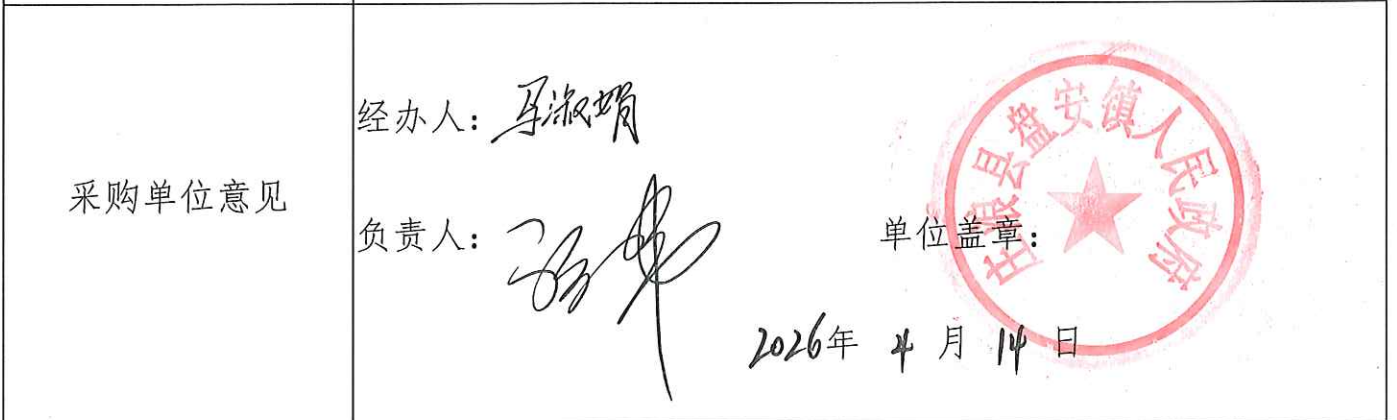 采购单位意见
经办人：马淑娟
负责人：
单位盖章：
庄浪县盘安镇人民政府
2026年 4 月 14 日